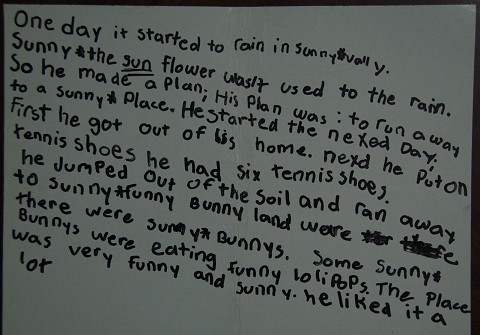 One day it started to rain in sunny*vally.
Sunny*the sun flower wasn't used to the rain.
So he made a Plan; His Plan was: to run away
to a sunny* Place. He started the nexed Day.
First he got out of his home. nexd he Put on
tennis shoes he had six tennis shoes.
he Jumped out of the soil and ran away
to sunny*funny Bunny land were
there were sunny* Bunnys. Some sunny*
Bunnys were eating funny loliPoPs. The Place
was very funny and sunny. he liked it a
lot